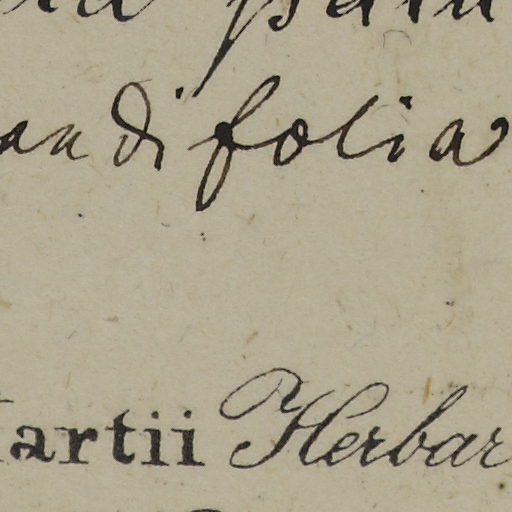 andifolia
artii Herbar